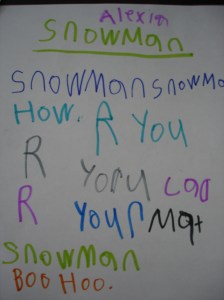 Alexia
SNOWMAN
SNOWMANSNOWMA
HOW. R YOU
R YoRU CaD
R YOUR Mat
SNOWMAN
BOO HOO.